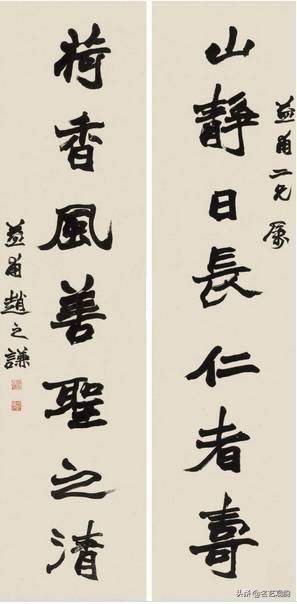 益甫二兄屬
山靜日長仁者壽
荷香風善聖之清
益甫趙之謙
头条 @名艺观韵